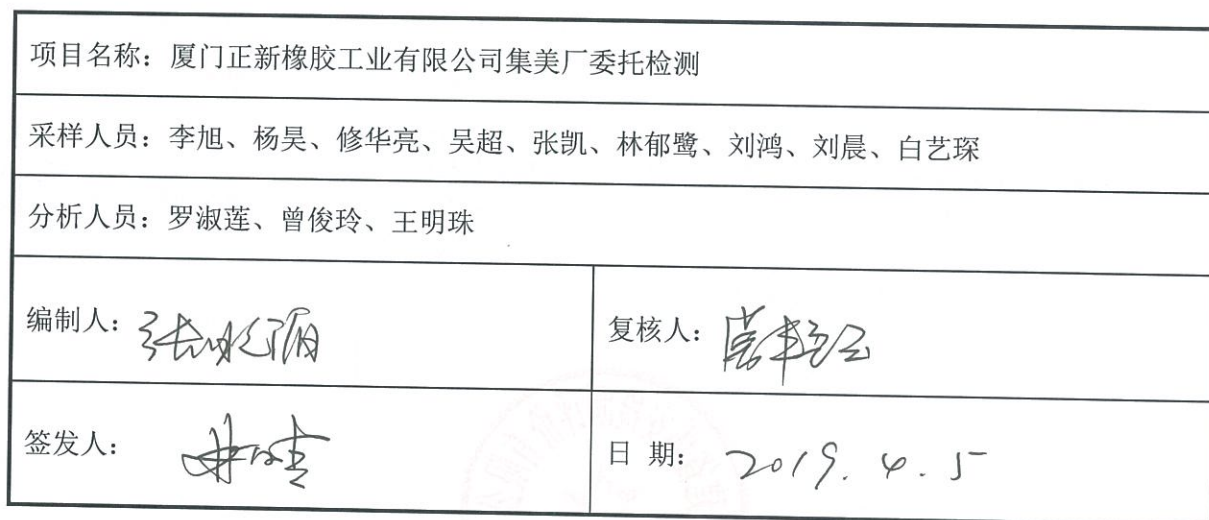 项目名称：厦门正新橡胶工业有限公司集美厂委托检测
采样人员：李旭、杨昊、修华亮、吴超、张凯、林郁鹭、刘鸿、刘晨、白艺琛
分析人员：罗淑莲、曾俊玲、王明珠
编制人：
复核人：
签发人：
日 期：2019.4.5